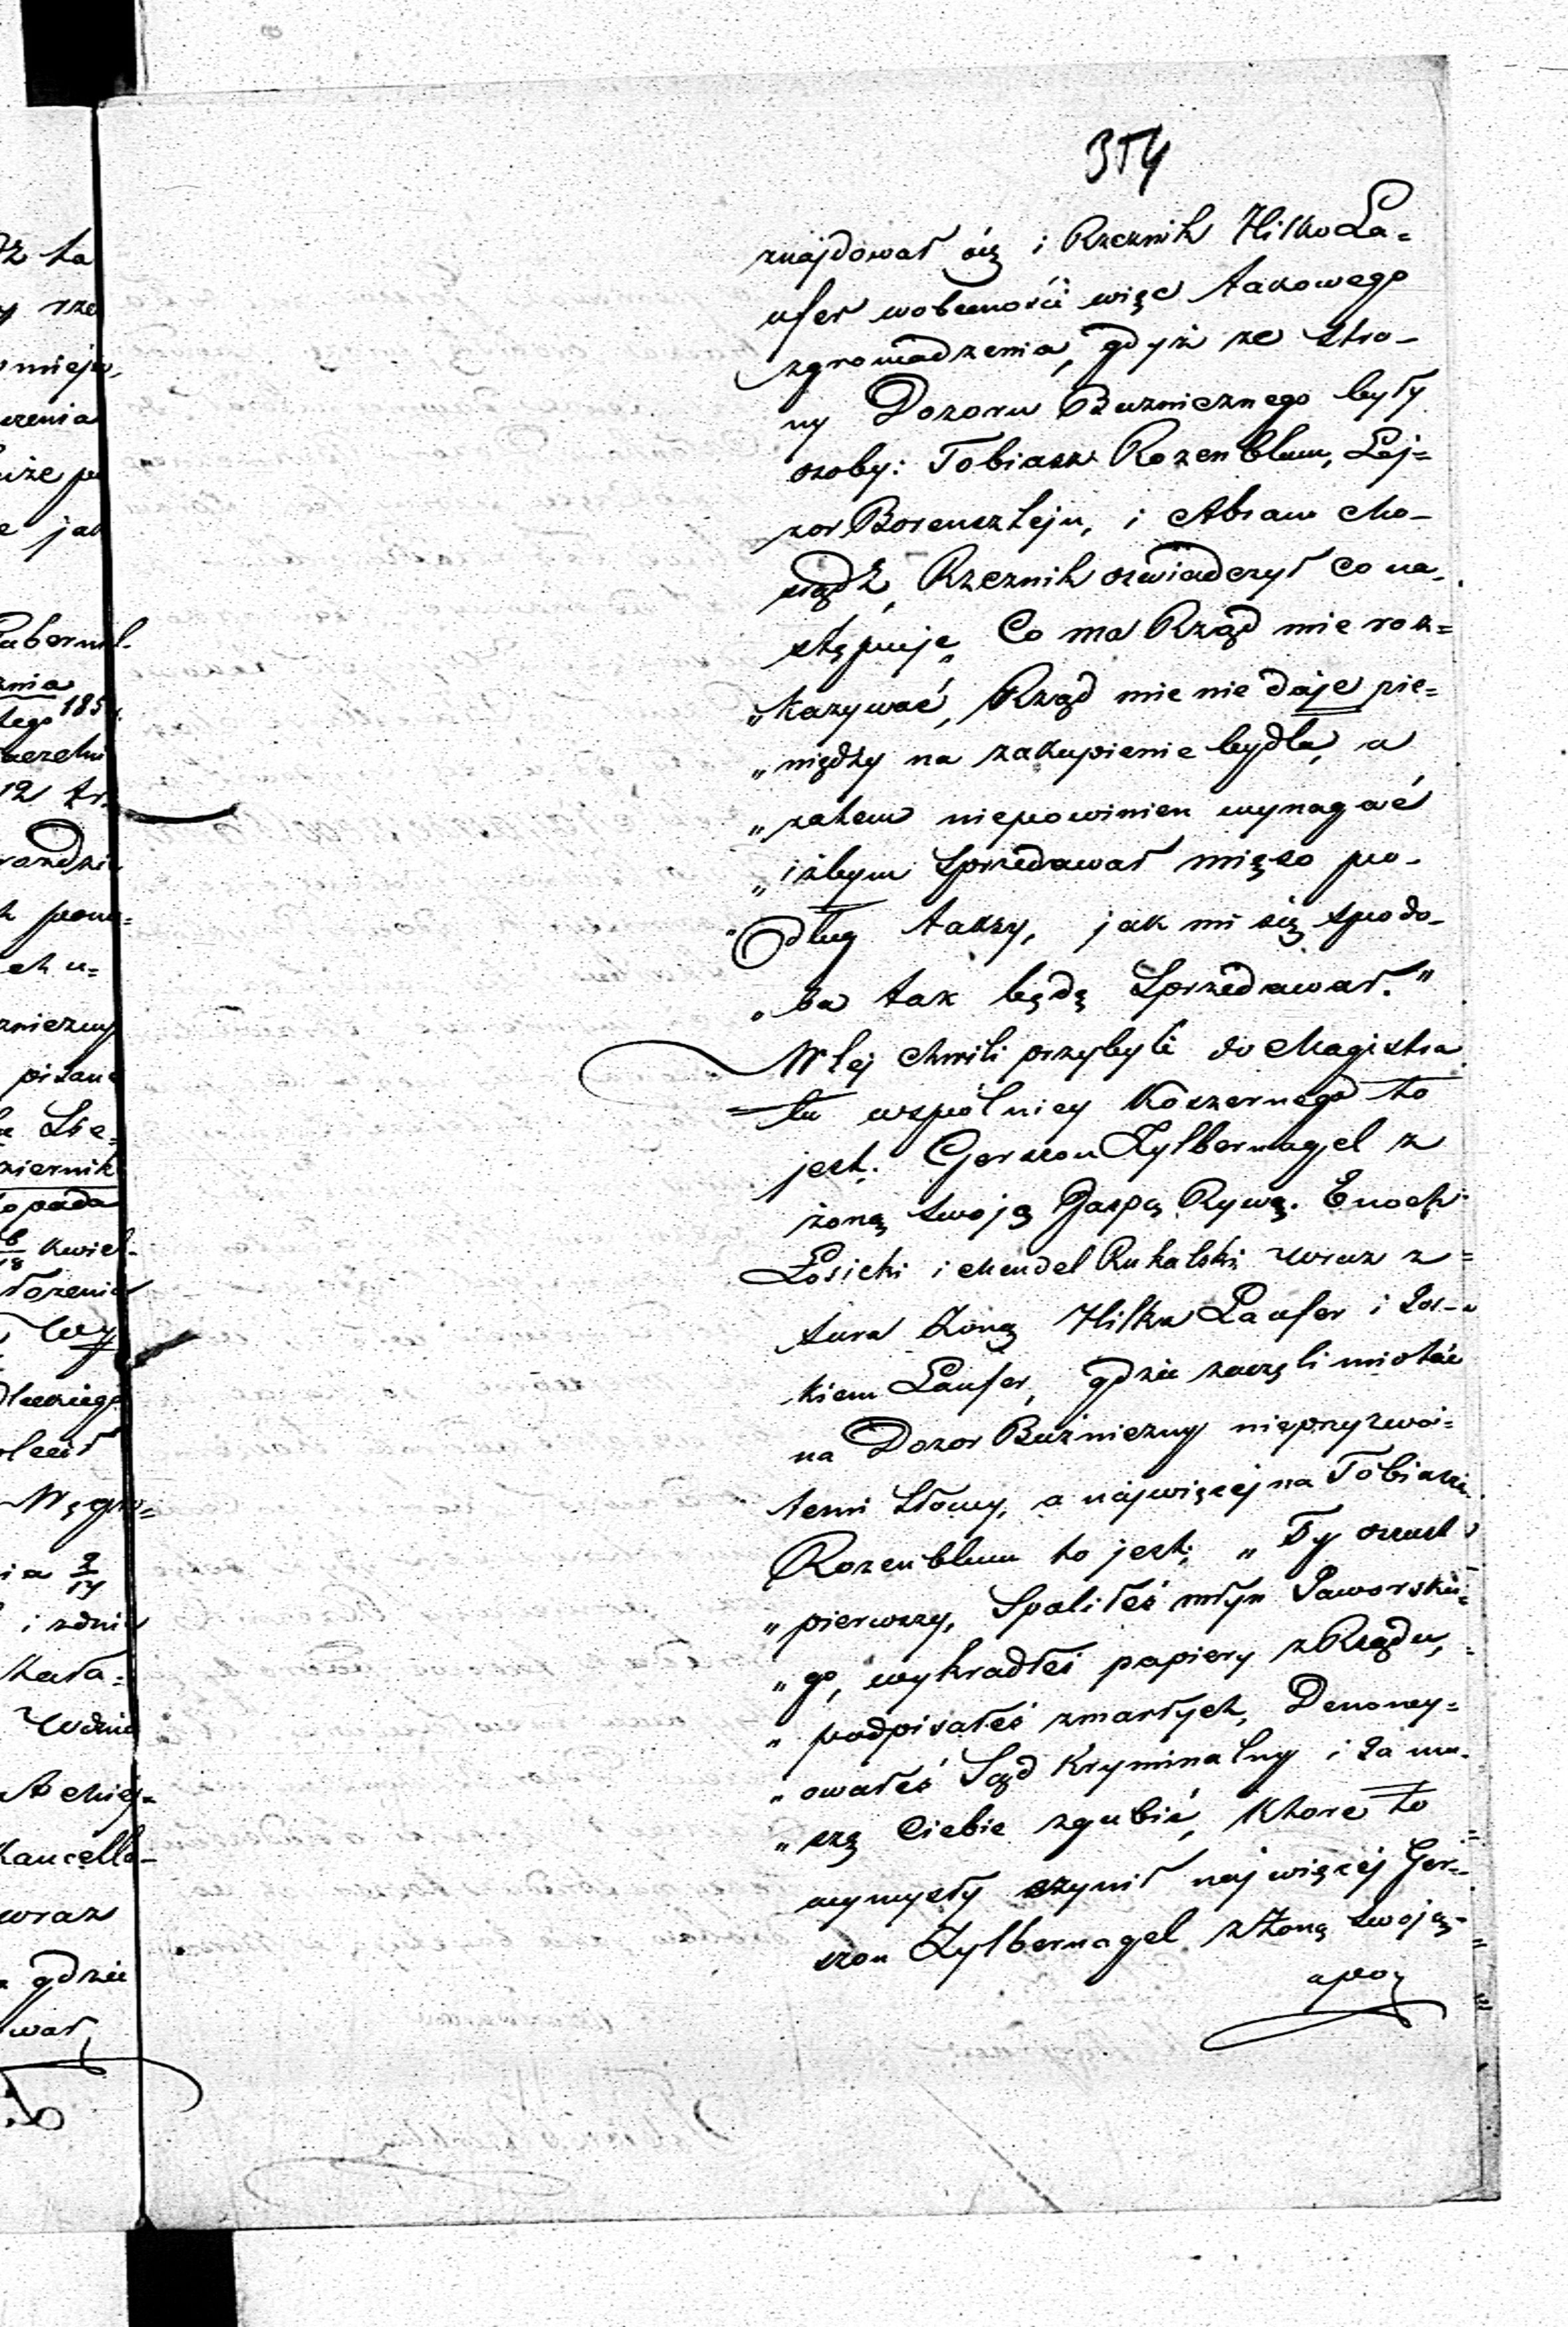 354
znajdował się i Rzeznik Hilko La=
ufer wobecności więc takowego
zgromadzenia, gdyż ze stro-
ny Dozoru Buznicznego były
osoby: Tobiasz Rozenblum, Lej=
zor Borensztejn, i Abram Mo-
Rzeznik oswiadczył co na-
stępuje „Co ma Rząd mie roz=
„kazywać, Rząd mie nie daje pie=
„niędzy na zakupienie bydła, a
„zatem niepowinien wymagać
„iżbym Sprzedawał mięso po-
„dług taxzy, jak mi się spodo-
„ba tak będę Sprzedawał."
W tej chwili przybyli do Magistra
=tu wspólnicy Koszernego to
jest: Gerszon Zylbernagel z
żoną swoją Rywą. Enoch
Łosicki i Mendel Rukalski wraz z=
Żoną Hilka Laufer i
kiem Laufer, gdzie zaczęli miotać
na Dozor Buźniczny nieprzyzwoi=
temi Słowy, a najwięcej na Tobiasza
Rozenblum to jest: „Ty oszust
„pierwszy, Spaliłeś młyn Jaworskie=
„go, wykradłeś papiery z Rządu,
„podpisałeś zmarłych, Denoncy=
„owałeś Sąd Kryminalny i Ja mu-
„szę Ciebie zgubić, Które to
wymysły czynił najwięcej Ger=
szon Zylbernagel z Żoną swoją
apoz
dz ta
rze
miejs
czenia
uże po
e jak
Gubernial-
znia
tego 185
12
pomi=
ch u=
pisane
Sie=
ziernik
opada
6/18 Kwiet-
łożenia
Wy
dleckiego
olecił
Węgro=
ia 2/14
i zdnia
Wdniu
Kancella-
wraz
gdzie
wał,